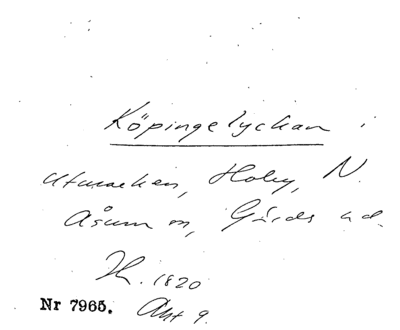 Köpingelyckan i
Utmarken, Hoby, N.
Åsum sn, Gärds hd.
1820
Nr 7965. Akt 9.